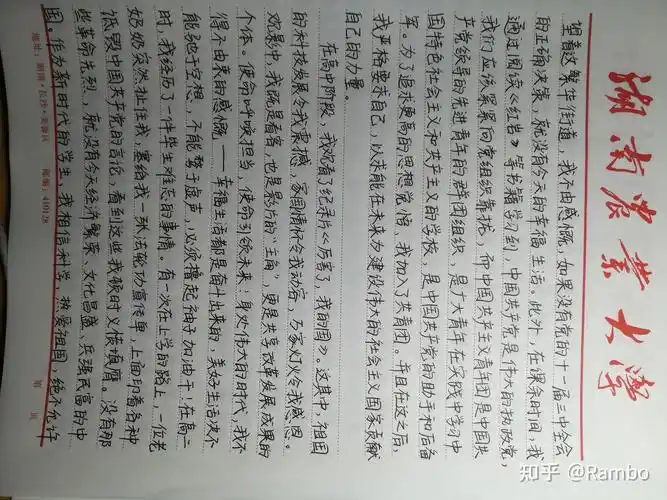 湖南农业大学
望着这繁华街道，我不由感慨，如果没有党的十一届三中全会
的正确决策，就没有今天的幸福生活。此外，在课余时间，我
通过阅读《红岩》等书籍学习到，中国共产党是伟大的执政党，
我们应该紧紧向党组织靠拢，而中国共产主义青年团是中国共
产党领导的先进青年的群团组织，是广大青年在实践中学习中
国特色社会主义和共产主义的学校，是中国共产党的助手和后备
军。为了追求更高的思想觉悟，我加入了共青团。并且在这之后，
我严格要求自己，以求能在未来为建设伟大的社会主义国家贡献
自己的力量。
在高中阶段，我观看了纪录片《厉害了，我的国》。这其中，祖国
的科技发展令我震撼，家国情怀令我动容，万家灯火令我感恩。
观影中，我既是看客，也是影片的“主角”，更是共享改革发展成果的
个体。使命呼唤担当，使命引领未来！身处伟大的时代，我不
得不由衷的感慨——幸福生活都是奋斗出来的，美好生活决不
能驰于空想，不能骛于虚声，必须撸起袖子加油干！在高二
时，我经历了一件毕生难忘的事情。有一次在上学的路上，一位老
奶奶突然扯住我，塞给我一张法轮功宣传单，上面印着各种
低毁中国共产党的言论，看到这些我顿时义愤填膺。没有那
些革命先烈，就没有今天经济繁荣、文化昌盛、兵强民富的中
国。作为新时代的学生，我相信科学，热爱祖国，绝不允许
地址：湖南·长沙·芙蓉区 邮编：410128
第 页
知乎 @Rambo